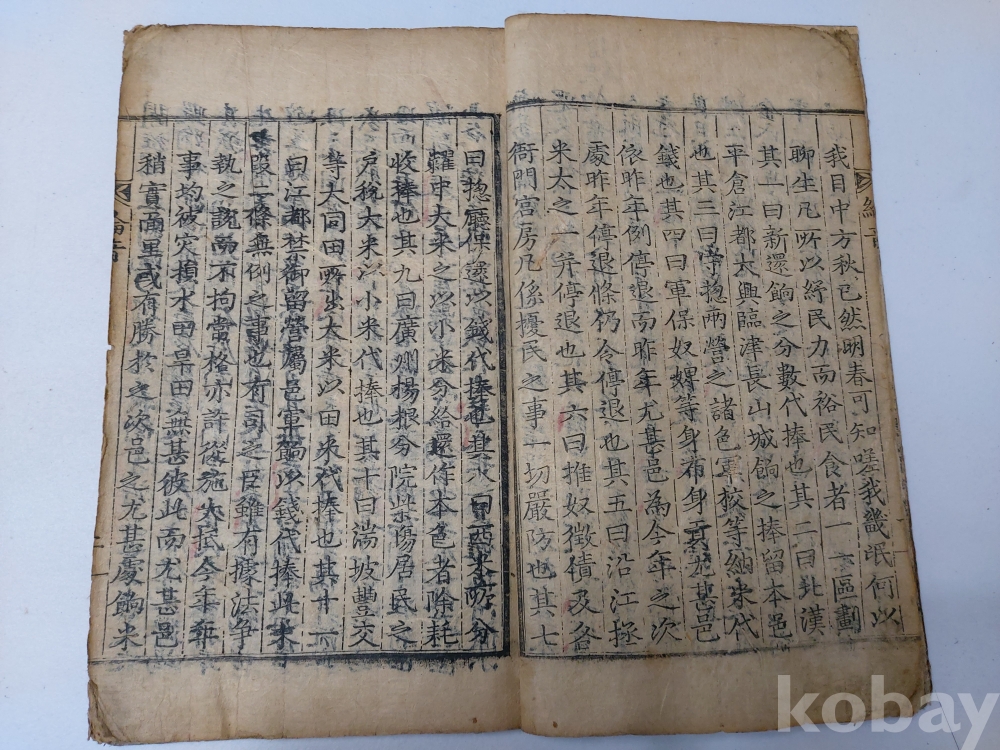 我目中方秋已然明春可知嗟我畿氓何以
聊生凡所以紓民力而裕民食者一一區劃
其一曰新還餉之分數代捧也其二曰北漢
平倉江都大興臨津長山城餉之捧留本邑
也其三曰 惣兩營之諸色軍校等納米代
錢也其四曰軍保奴 等身布身 尤甚邑
依昨年例停退而昨年尤甚邑為今年之次
處昨年停退條仍令停退也其五曰沿江拯
米太之一 并停退也其六曰推奴徵債及各
衙門宮房凡係擾民之事一切嚴防也其七
曰惣廳保還以錢代捧也其八曰酉 分
糶中大米之以小米分給還作本色者除耗
收捧也其九曰廣州楊根分院柴場居民之
戶稅大米以小米代捧也其十曰湯坡豐交
等大同田所出太米以田米代捧也其十一
曰江都禁御留營屬邑軍餉以錢代捧此米
二條無例之事也有司之臣雖有據法爭
執之說而不拘當格亦許從施大抵今年 
事均被灾損水田旱田無甚彼此而尤甚邑
稍實面里或有勝於之次邑之尤甚處餉米
綸音
綸音
kobay